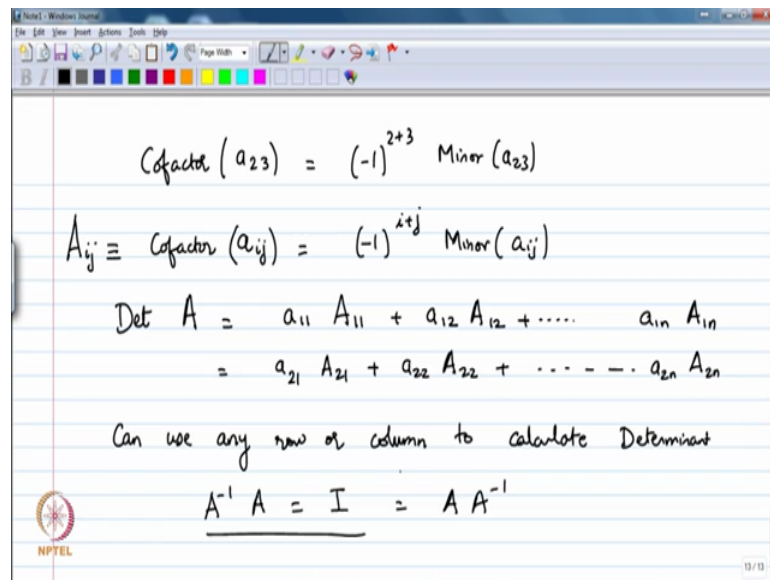 Note1 - Windows Journal
File Edit View Insert Actions Tools Help
Page Width
B I
Cofactor (a₂₃) = (-1)²⁺³ Minor (a₂₃)
Aᵢⱼ ≡ Cofactor (aᵢⱼ) = (-1)ⁱ⁺ʲ Minor (aᵢⱼ)
Det A = a₁₁ A₁₁ + a₁₂ A₁₂ + ..... a₁ₙ A₁ₙ
= a₂₁ A₂₁ + a₂₂ A₂₂ + ------. a₂ₙ A₂ₙ
Can use any row or column to calculate Determinant
A⁻¹ A = I = A A⁻¹
NPTEL
13/13